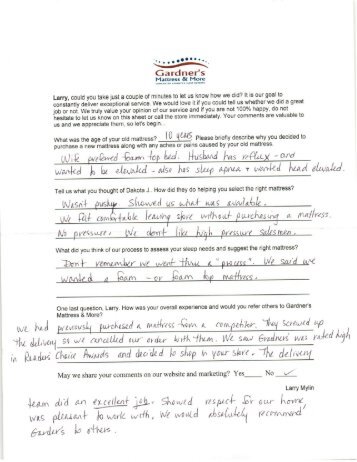 Gardner's
Mattress & More
Larry, could you take just a couple of minutes to let us know how we did? It is our goal to
constantly deliver exceptional service. We would love it if you could tell us whether we did a great
job or not. We truly value your opinion of our service and if you are not 100% happy, do not
hesitate to let us know on this sheet or call the store immediately. Your comments are valuable to
us and we appreciate them, so let's begin...
What was the age of your old mattress? 10 years Please briefly describe why you decided to
purchase a new mattress along with any aches or pains caused by your old mattress.
Wife preferred foam top bed. Husband has reflux - and
wanted to be elevated - also has sleep apnea & wanted head elevated.
Tell us what you thought of Dakota J. How did they do helping you select the right mattress?
Wasn't pushy. Showed us what was available.
We felt comfortable leaving store without purchasing a mattress.
No pressure. We don't like high pressure salesmen.
What did you think of our process to assess your sleep needs and suggest the right mattress?
Don't remember we went thru a "process". We said we
wanted a foam - or foam top mattress.
One last question, Larry. How was your overall experience and would you refer others to Gardner's
Mattress & More?
we had previously purchased a mattress from a competitor. They screwed up
the delivery so we cancelled our order with them. We saw Gardners was rated high
in Readers' Choice Awards and decided to shop in your store. The delivery
May we share your comments on our website and marketing? Yes___ No ✓
Larry Mylin
team did an excellent job. Showed respect for our home,
was pleasant to work with. We would absolutely recommend
Garders to others.